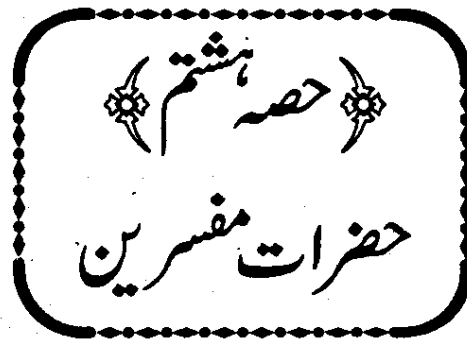 ﴿حصہ ہشتم﴾
حضرات مفسرین